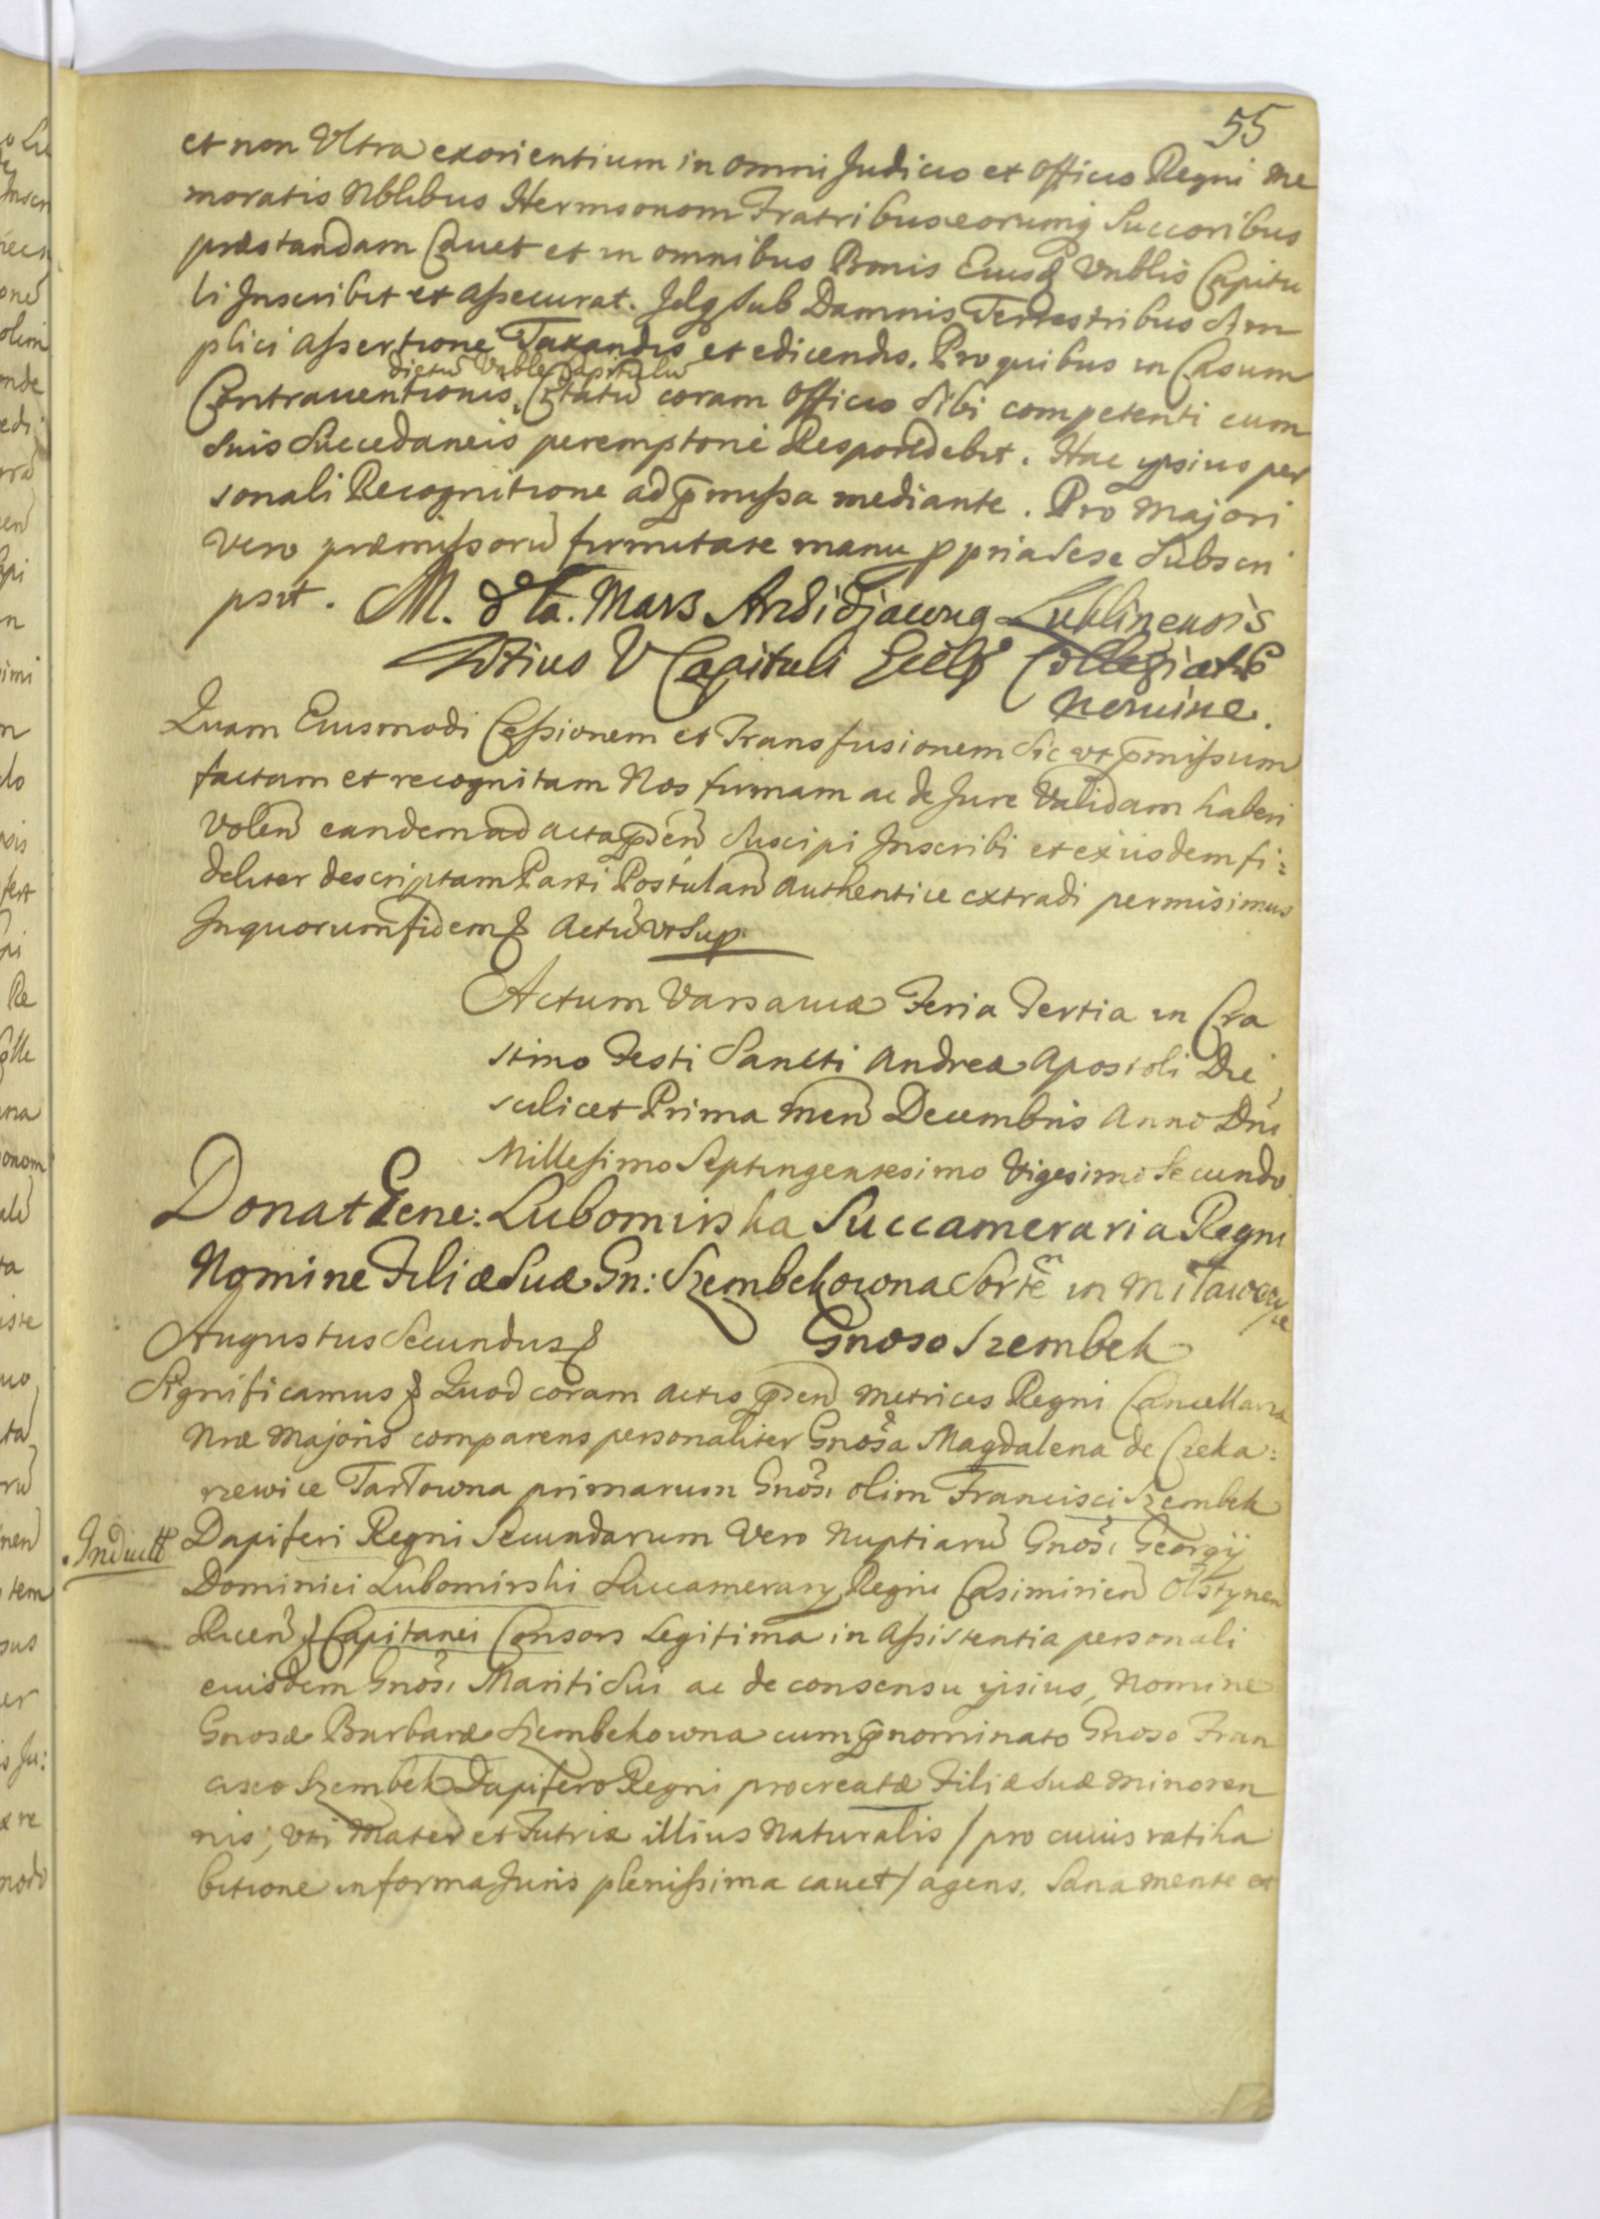 55
et non Ultra exorientium in omni Judicio et Officio Regni me
moratis Nblibus Hermsonom Fratribus eorumq Succoribus
præstandam Cauet et in omnibus Bonis Eiusd Vnblis Capitu
li Inscribit et assecurat. Idq sub Damnis Terrestribus Sim
plici assertione Taxandis et edicendis. Pro quibus in Casum
dictū Vnble Capitulū
Contrauentionis, Citatū coram Officio sibi competenti cum
suis Succedaneis peremptorie Respondebit. Hac ipsius per
sonali Recognitione ad p̄missa mediante. Pro Majori
Vero præmissorū firmitate manu ppria sese Subscri
psit. M. d la. Mars Archidjacong Lublinensis
totius V Capituli Eccle Collegiatæ
nomine.
Quam Eiusmodi Cessionem et Transfusionem Sic vt p̄missum
factam et recognitam Nos firmam ac de Jure Validam haberi
Volen̄ eandem ad acta p̄den̄ Suscipi Inscribi et exiisdem fi:
deliter descriptam Parti Postulan̄ authentice extradi permisimus
In quorum fidem & Actū vt Sup.
Actum Varsauiæ Feria Tertia in Cra
stino Festi Sancti Andreæ Apostoli Die
scilicet Prima men̄ Decembris Anno Dni
Millesimo Septingentesimo Vigesimo Secundo
Donat Gene: Lubomirska Succameraria Regni
Nomine Filiæ Suæ Gn: Szembekowna Sortē in Mitawczy
ce
Augustus Secundus &
Gnoso Szembek
Significamus & Quod coram actis p̄den̄ Metrices Regni Cancellariæ
Nræ Majoris comparens personaliter Gnosa Magdalena de Czeka:
rzewice Tarłowna primarum Gnosi olim Francisci Szembek
.Induct Dapiferi Regni Secundarum Vero Nuptiarū Gnosi Georgij
Dominici Lubomirski Succamerarij Regni Casimirien̄ Olstynen
Ricen̄ & Capitanei Consors Legitima in Assistentia personali
eiusdem Gnosi Mariti Sui ac de consensu ipsius, Nomine
Gnosæ Barbaræ Szembekowna cum p̄nominato Gnoso Fran
cisco Szembek Dapifero Regni procreatæ Filiæ Suæ Minoren
nis, vti Mater et Tutrix illius Naturalis / pro cuius ratiha
bitione in forma Juris plenissima cauet / agens. Sana mente et